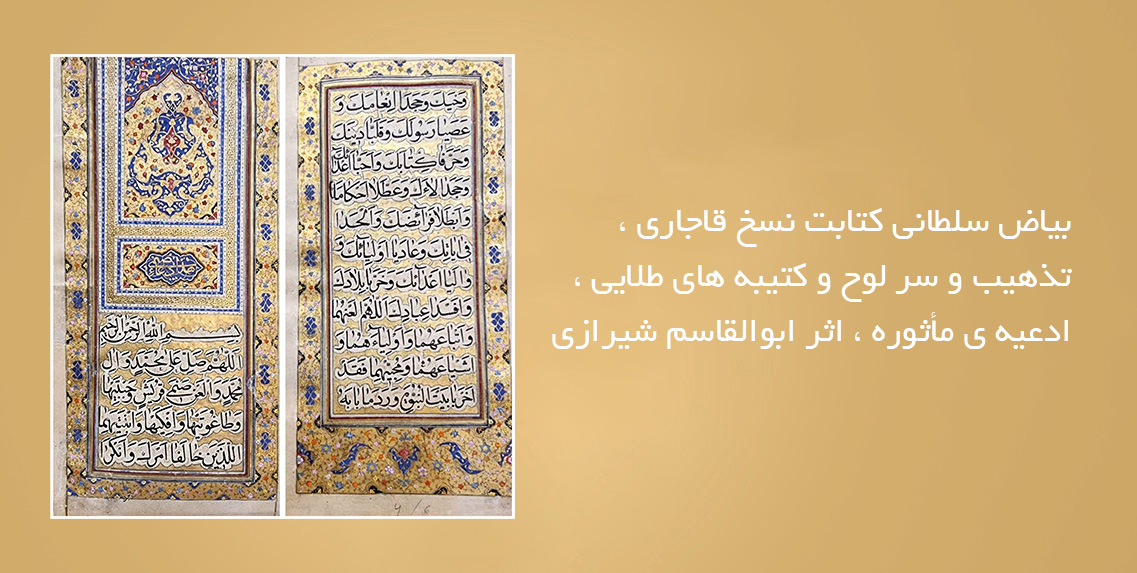 بیاض سلطانی کتابت نسخ قاجاری ،
تذهیب و سر لوح و کتیبه های طلایی ،
ادعیه ی مأثوره ، اثر ابوالقاسم شیرازی
بسم الله الرحمن الرحیم
اللهم صل علی محمد وال
محمد والعن صنمی قریش وجبتیها
وطاغوتیها وافکیها وابنتیهما
اللذین خالفا امرک وانکرا
وحیک وجحدا انعامک و
عصیا رسولک وقلبا دینک
وحرفا کتابک واحبا اعدائک
وجحدا الائک وعطلا احکامک
وابطلا فرائضک والحدا
فی ایاتک وعادیا اولیائک و
والیا اعدائک وخربا بلادک
وافسدا عبادک اللهم العنهما
واتباعهما واولیاءهما و
اشیاعهما ومحبیهما فقد
اخربا بیت النبوة وردما بابه